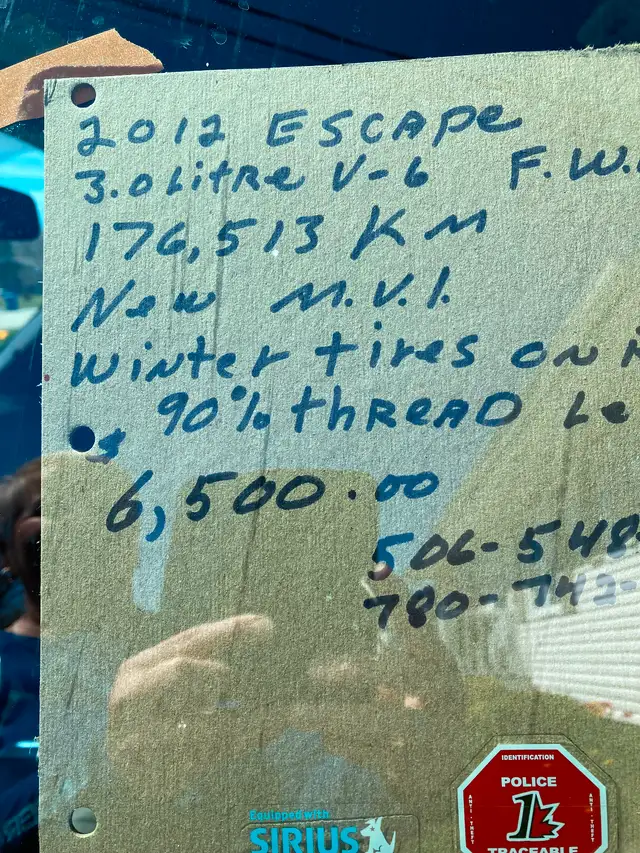 2012 ESCAPE
3.0 LitRe V-6 F.W.
176,513 KM
New M.V.I.
Winter tires ON
90% thREAD Le
$
6,500.00
506-548-
780-742-
IDENTIFICATION
POLICE
ANTI-THEFT
1
ANTI-THEFT
TRACEABLE
Equipped with
SIRIUS